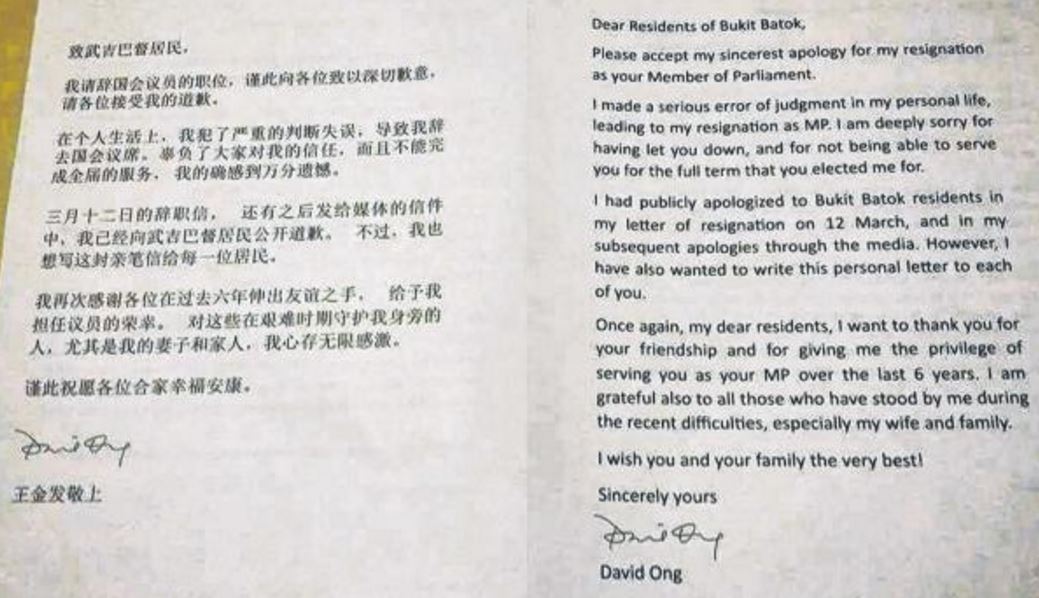 致武吉巴督居民，
我请辞国会议员的职位，谨此向各位致以深切歉意，
请各位接受我的道歉。
在个人生活上，我犯了严重的判断失误，导致我辞
去国会议席。辜负了大家对我的信任，而且不能完
成全届的服务， 我的确感到万分遗憾。
三月十二日的辞职信， 还有之后发给媒体的信件
中，我已经向武吉巴督居民公开道歉。 不过，我也
想写这封亲笔信给每一位居民。
我再次感谢各位在过去六年伸出友谊之手， 给予我
担任议员的荣幸。 对这些在艰难时期守护我身旁的
人，尤其是我的妻子和家人，我心存无限感激。
谨此祝愿各位合家幸福安康。
David Ong
王金发敬上
Dear Residents of Bukit Batok,
Please accept my sincerest apology for my resignation
as your Member of Parliament.
I made a serious error of judgment in my personal life,
leading to my resignation as MP. I am deeply sorry for
having let you down, and for not being able to serve
you for the full term that you elected me for.
I had publicly apologized to Bukit Batok residents in
my letter of resignation on 12 March, and in my
subsequent apologies through the media. However, I
have also wanted to write this personal letter to each
of you.
Once again, my dear residents, I want to thank you for
your friendship and for giving me the privilege of
serving you as your MP over the last 6 years. I am
grateful also to all those who have stood by me during
the recent difficulties, especially my wife and family.
I wish you and your family the very best!
Sincerely yours
David Ong
David Ong